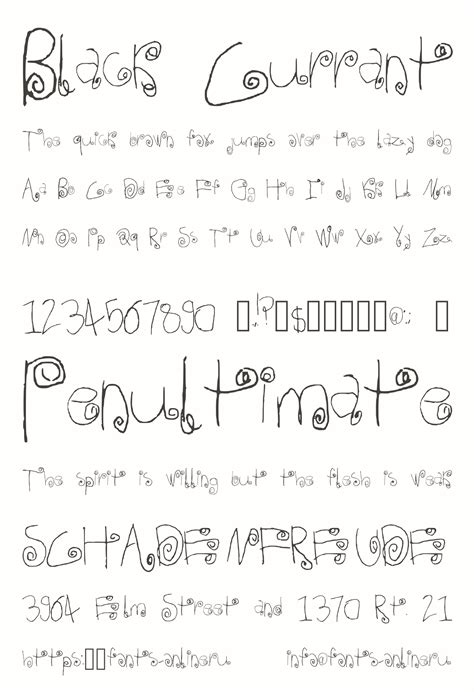 Black Currant
The quick brown fox jumps over the lazey dog
Aa Bb Cc Dd Ee Ff Gg Hh Ii Jj Kk Ll Mm
Nn Oo Pp Qq Rr Ss Tt Uu Vv Ww Xx Yy Zz
1234567890 □.!?□$□□□□□@:; □
Penultimate
The spirit is willing but the flesh is weak
SCHADENFREUDE
3964 Elm Street and 1370 Rt. 21
https:□□fonts-online.ru info@fonts-online.ru